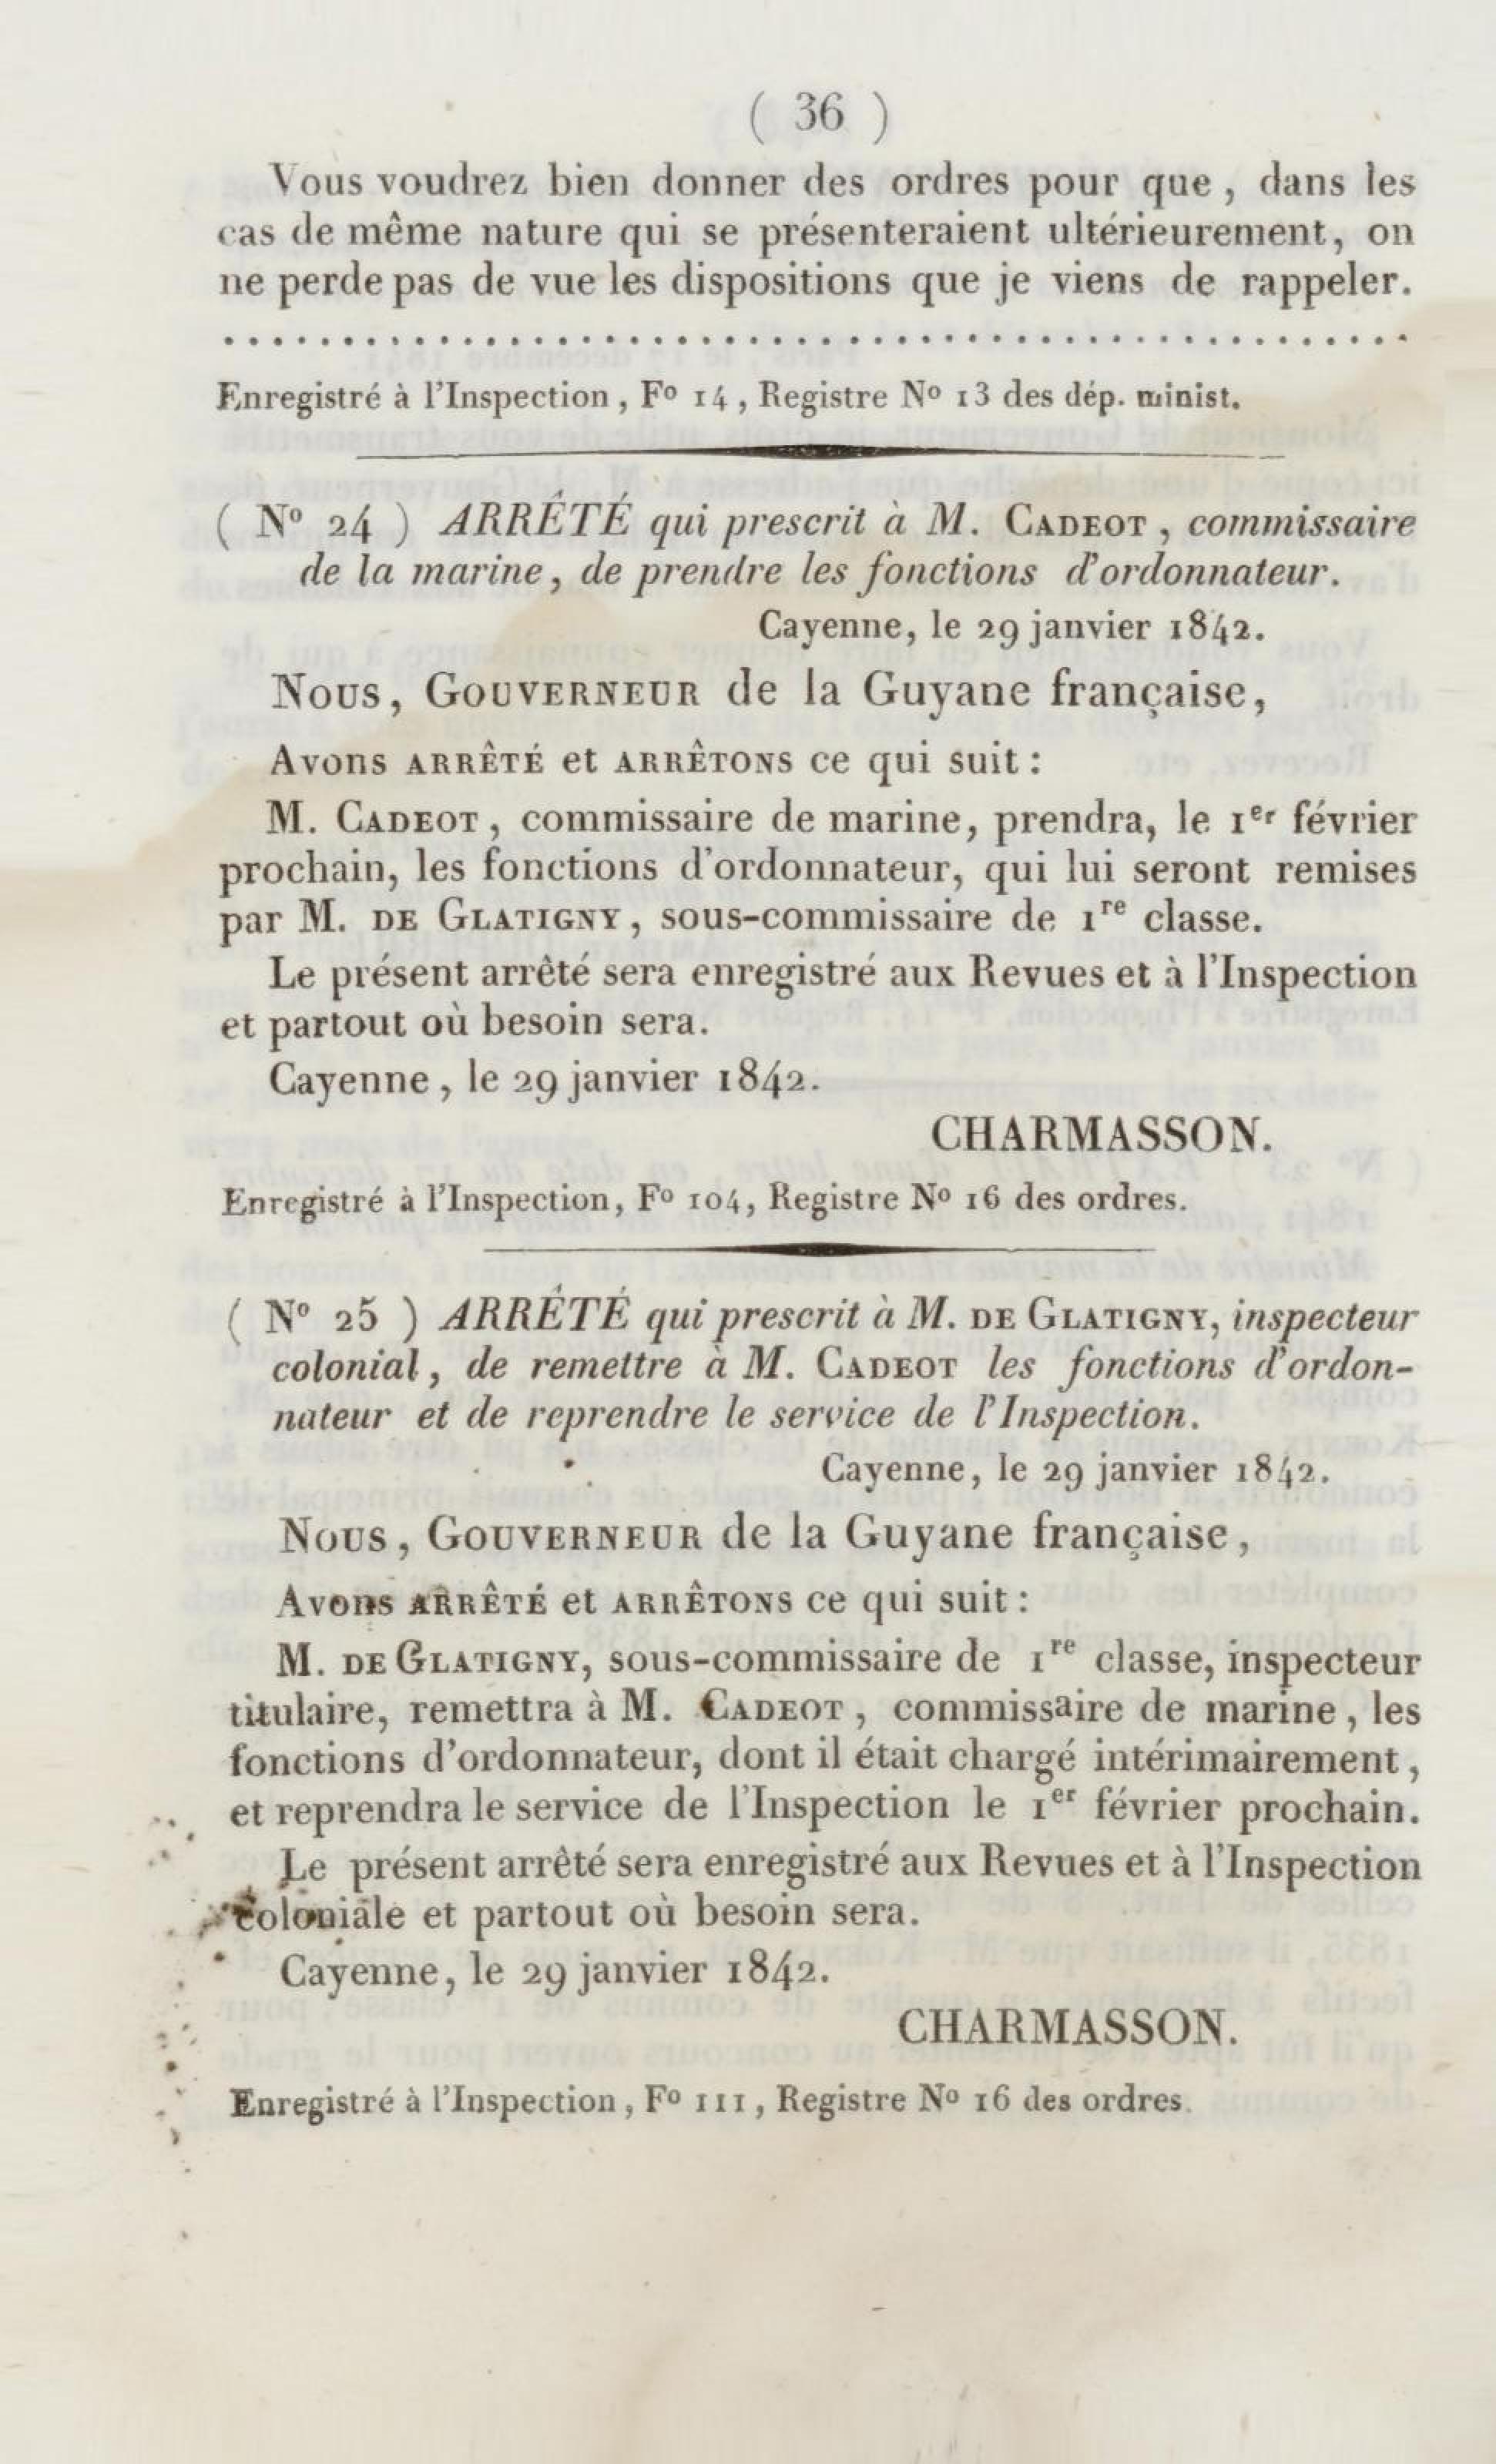 ( 36 )
Vous voudrez bien donner des ordres pour que, dans les
cas de même nature qui se présenteraient ultérieurement, on
ne perde pas de vue les dispositions que je viens de rappeler.
..................................................
Enregistré à l'Inspection, Fº 14, Registre Nº 13 des dép. minist.
( Nº 24 ) ARRÊTÉ qui prescrit à M. CADEOT, commissaire
de la marine, de prendre les fonctions d'ordonnateur.
Cayenne, le 29 janvier 1842.
NOUS, GOUVERNEUR de la Guyane française,
Avons ARRÊTÉ et ARRÊTONS ce qui suit :
M. CADEOT, commissaire de marine, prendra, le 1er février
prochain, les fonctions d'ordonnateur, qui lui seront remises
par M. DE GLATIGNY, sous-commissaire de 1re classe.
Le présent arrêté sera enregistré aux Revues et à l'Inspection
et partout où besoin sera.
Cayenne, le 29 janvier 1842.
CHARMASSON.
Enregistré à l'Inspection, Fº 104, Registre Nº 16 des ordres.
( Nº 25 ) ARRÊTÉ qui prescrit à M. DE GLATIGNY, inspecteur
colonial, de remettre à M. CADEOT les fonctions d'ordon-
nateur et de reprendre le service de l'Inspection.
Cayenne, le 29 janvier 1842.
NOUS, GOUVERNEUR de la Guyane française,
Avons ARRÊTÉ et ARRÊTONS ce qui suit :
M. DE GLATIGNY, sous-commissaire de 1re classe, inspecteur
titulaire, remettra à M. CADEOT, commissaire de marine, les
fonctions d'ordonnateur, dont il était chargé intérimairement,
et reprendra le service de l'Inspection le 1er février prochain.
Le présent arrêté sera enregistré aux Revues et à l'Inspection
coloniale et partout où besoin sera.
Cayenne, le 29 janvier 1842.
CHARMASSON.
Enregistré à l'Inspection, Fº 111, Registre Nº 16 des ordres.